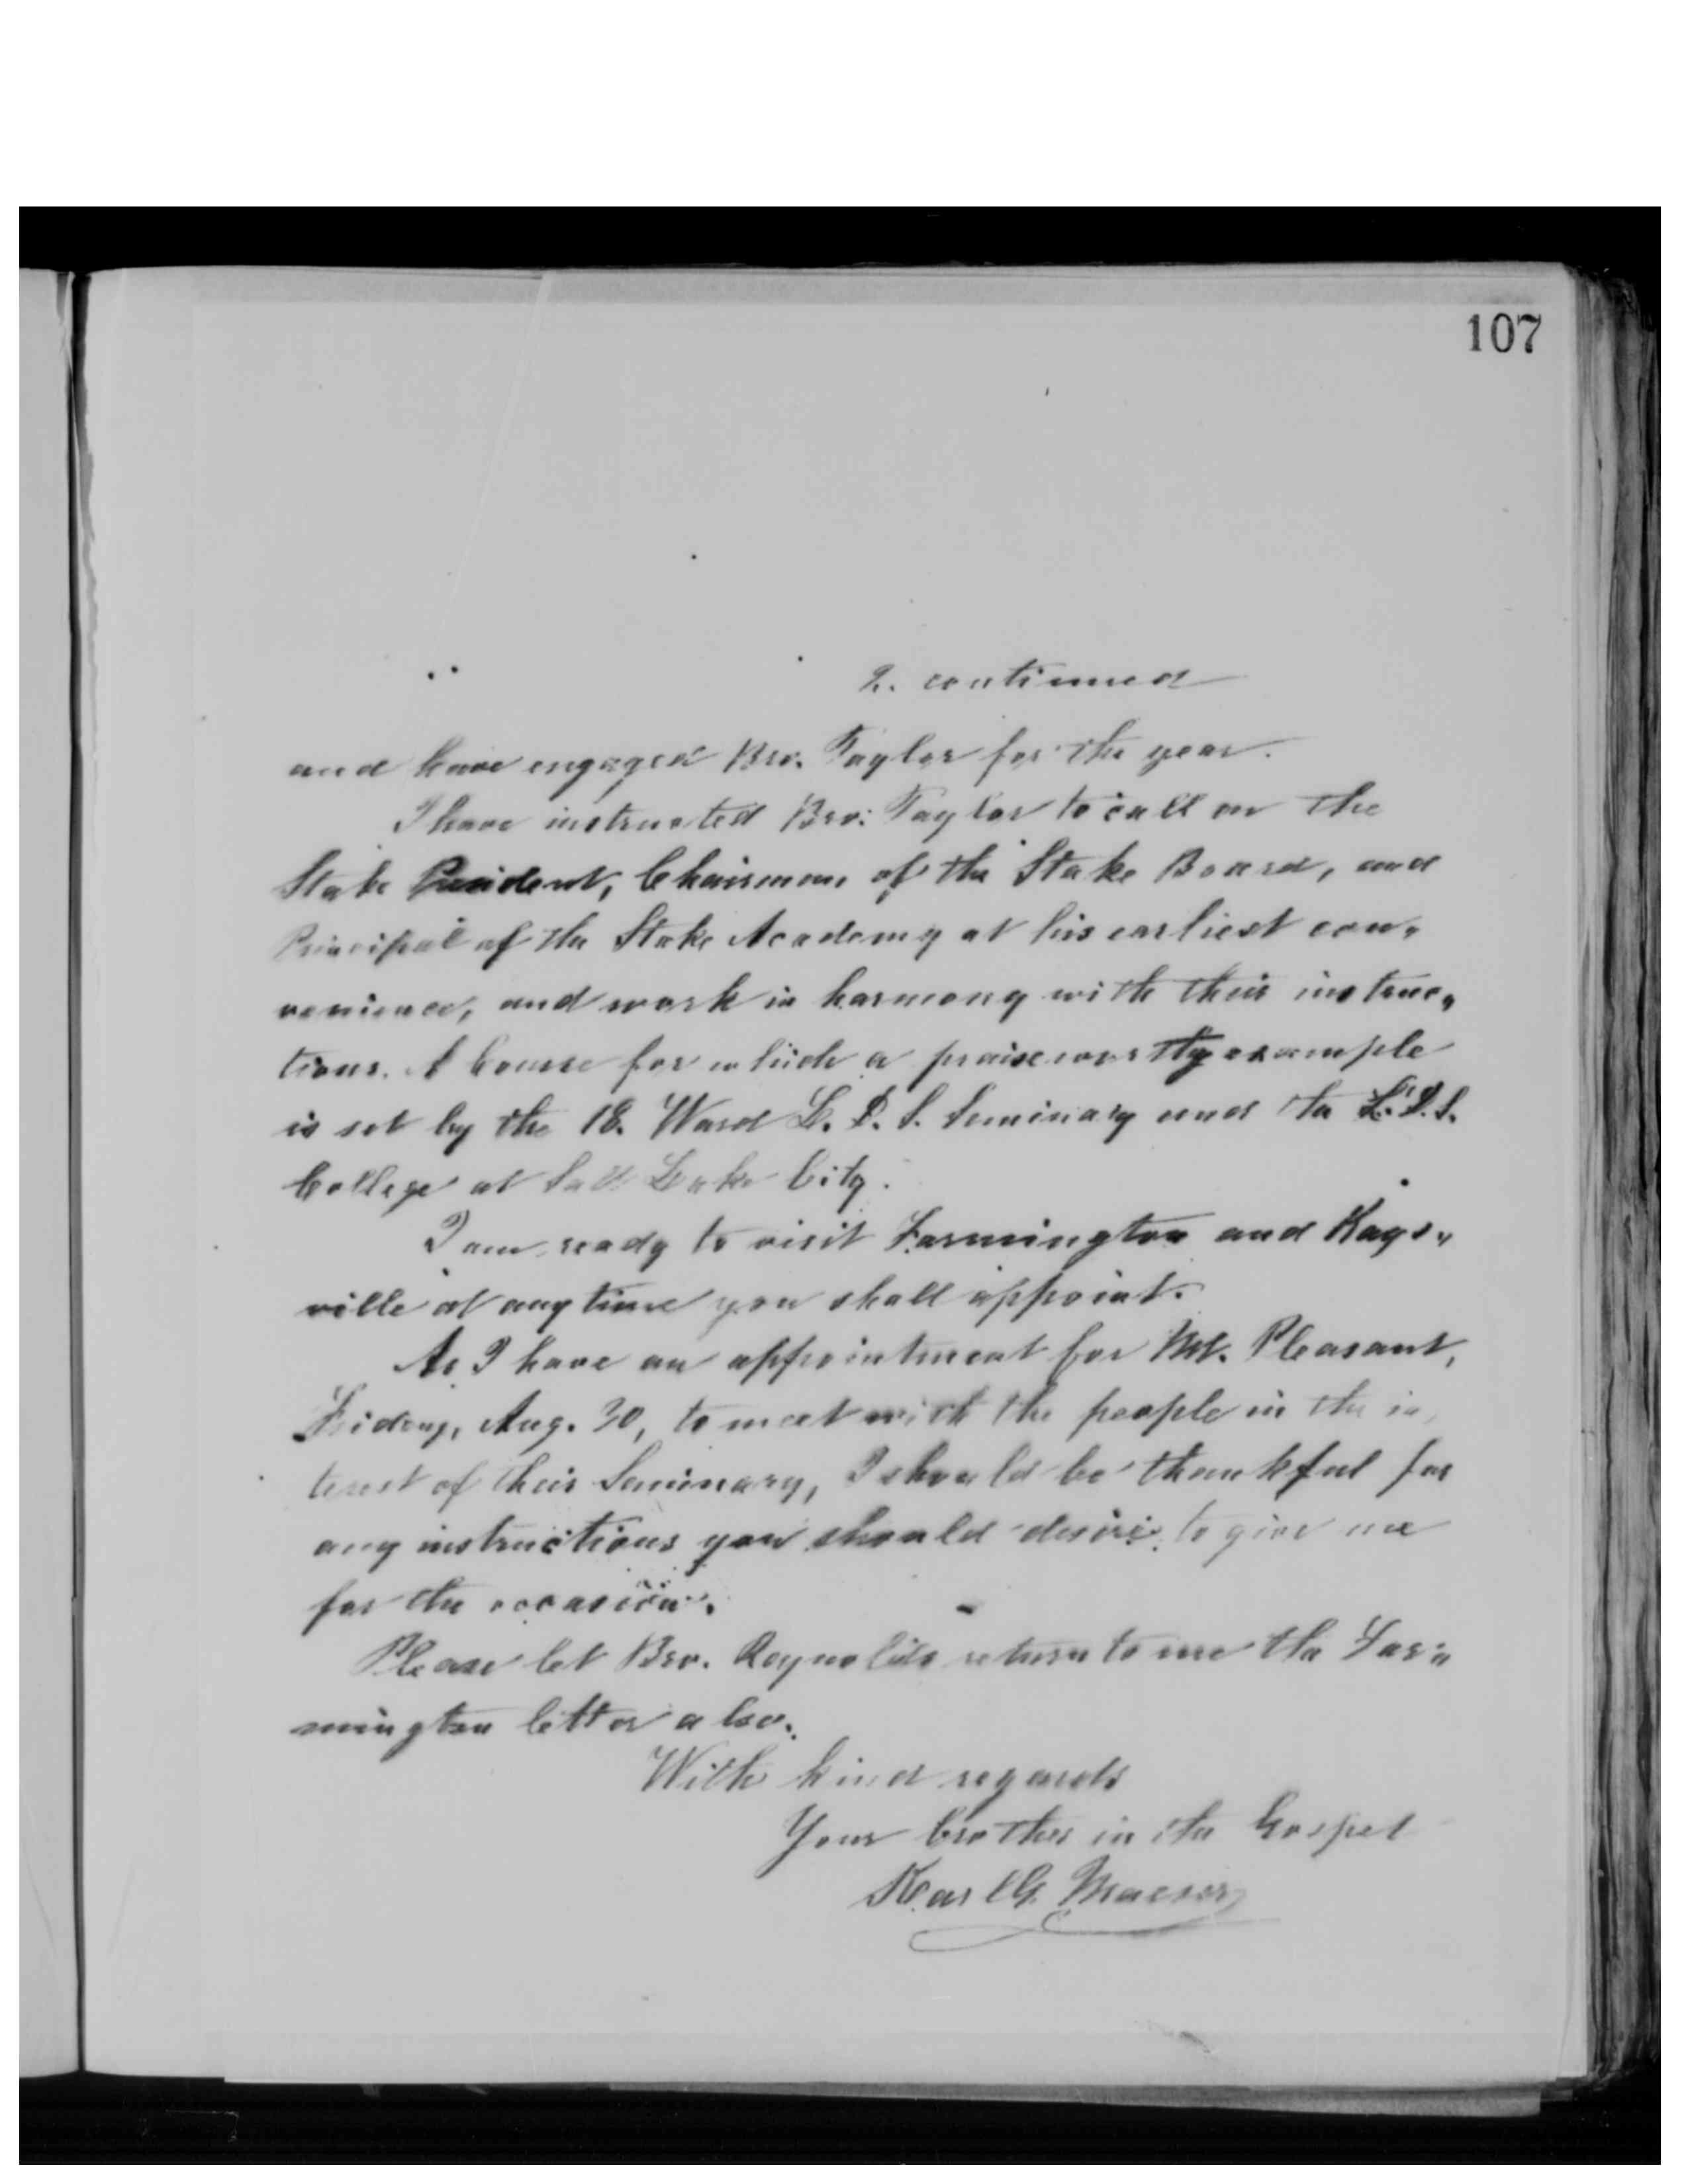 107
2. continued
and have engaged Bro. Taylor for the year.
I have instructed Bro. Taylor to call on the
Stake President, Chairman of the Stake Board, and
Principal of the Stake Academy at his earliest con„
venience, and work in harmony with their instruc„
tions. A Course for which a praiseworthy example
is set by the 18. Ward L. D. S. Seminary and the L. D. S.
College at Salt Lake City.
I am ready to visit Farmington and Kays„
ville at any time you shall appoint.
As I have an appointment for Mt. Pleasant,
Friday, Aug. 30, to meet with the people in the in„
terest of their Seminary, I should be thankful for
any instructions you should desire to give me
for the occasion.
Please let Bro. Reynolds return to me the Far„
mington letter also.
With kind regards
Your brother in the Gospel
Karl G. Maeser